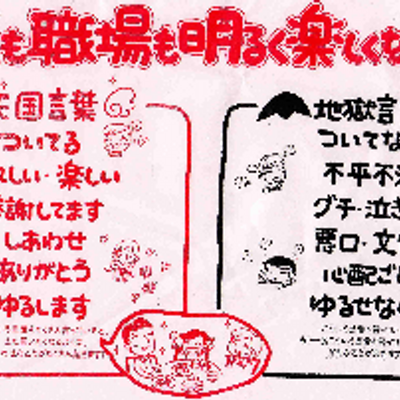 も職場も明るく楽しくな
天国言葉
ついてる
しい・楽しい
感謝してます
しあわせ
ありがとう
ゆるします
地獄言
ついてな
不平不
グチ・泣き
悪口・文
心配ご
ゆるせな